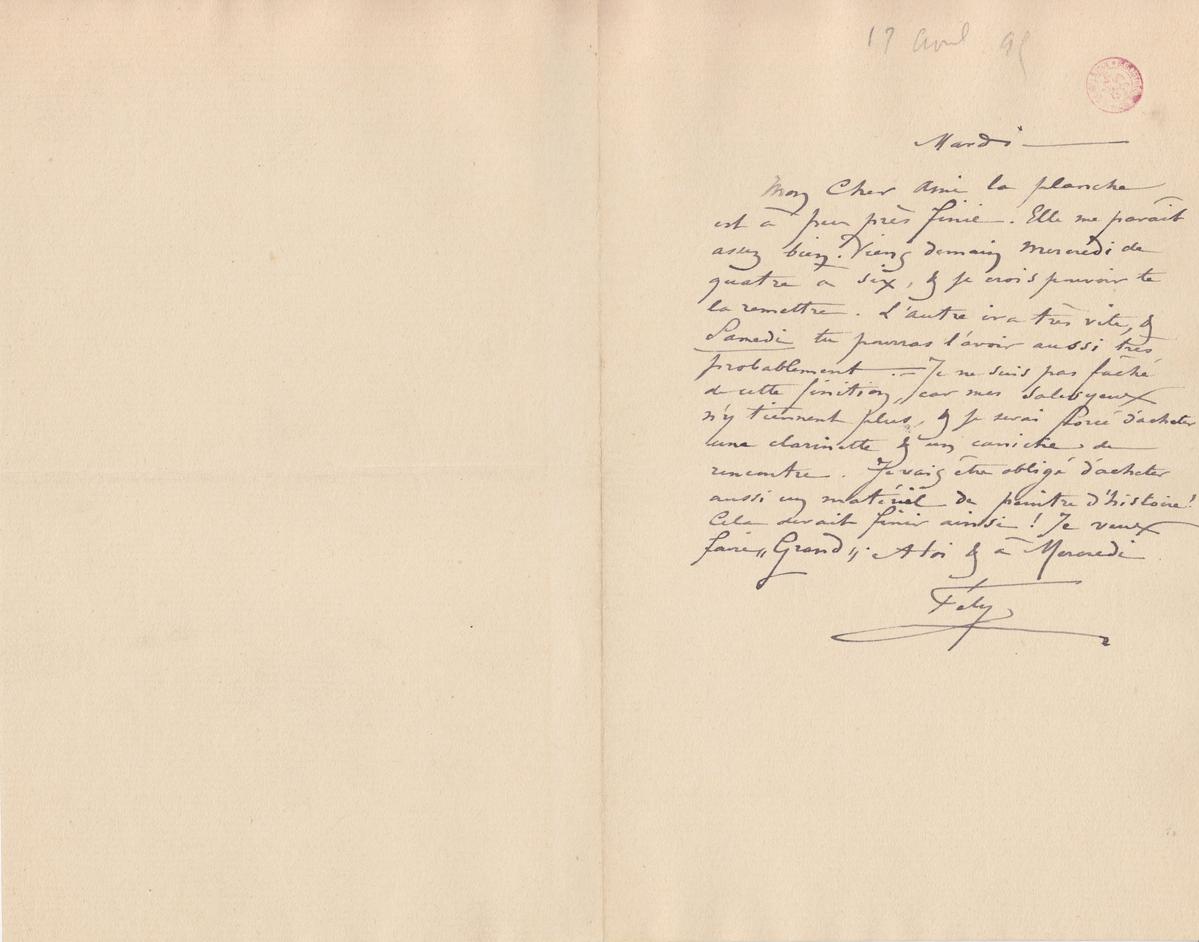 17 avril 95
Mardi
Mon Cher Ami la planche
est à peu près finie. Elle me paraît
assez bien. Viens demain Mercredi de
quatre a six, & je crois pouvoir te
la remettre. L'autre ira très vite, &
Samedi tu pourras l'avoir aussi très
probablement. — Je ne suis pas fâché
de cette finition, car mes yeux
n'y tiennent plus, & je serai forcé d'acheter
une clarinette & un caniche de
rencontre. Je vais être obligé d'acheter
aussi un matériel de peintre d'histoire!
Cela devait finir ainsi! Je veux
faire „Grand„. A toi & à Mercredi
Fély